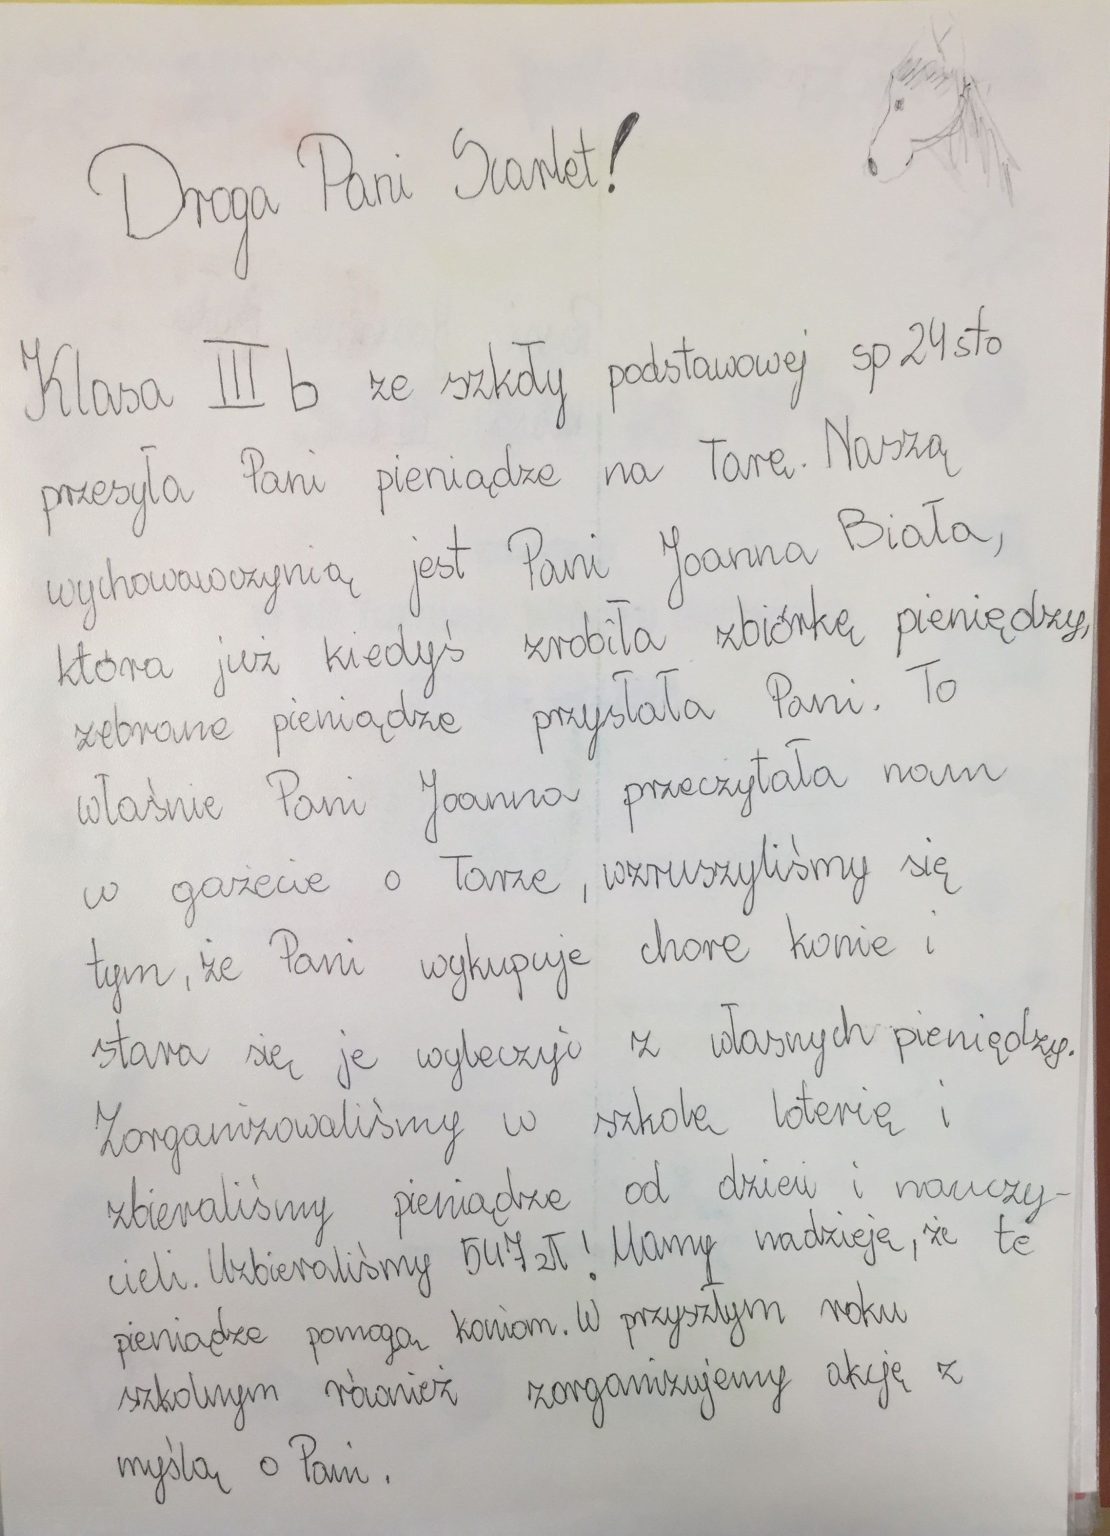 Droga Pani Scarlet!
Klasa III b ze szkoły podstawowej sp 24 sto
przesyła Pani pieniądze na Tarę. Naszą
wychowawczynią jest Pani Joanna Biała,
która już kiedyś zrobiła zbiórkę pieniędzy,
zebrane pieniądze przysłała Pani. To
właśnie Pani Joanna przeczytała nam
w gażecie o Tarze, wzruszyliśmy się
tym, że Pani wykupuje chore konie i
stara się je wyleczyć z własnych pieniędzy.
Zorganizowaliśmy w szkole loterię i
zbieraliśmy pieniądze od dzieci i nauczy-
cieli. Uzbieraliśmy 547 zł! Mamy nadzieję, że te
pieniądze pomogą koniom. W przyszłym roku
szkolnym również zorganizujemy akcję z
myślą o Pani.